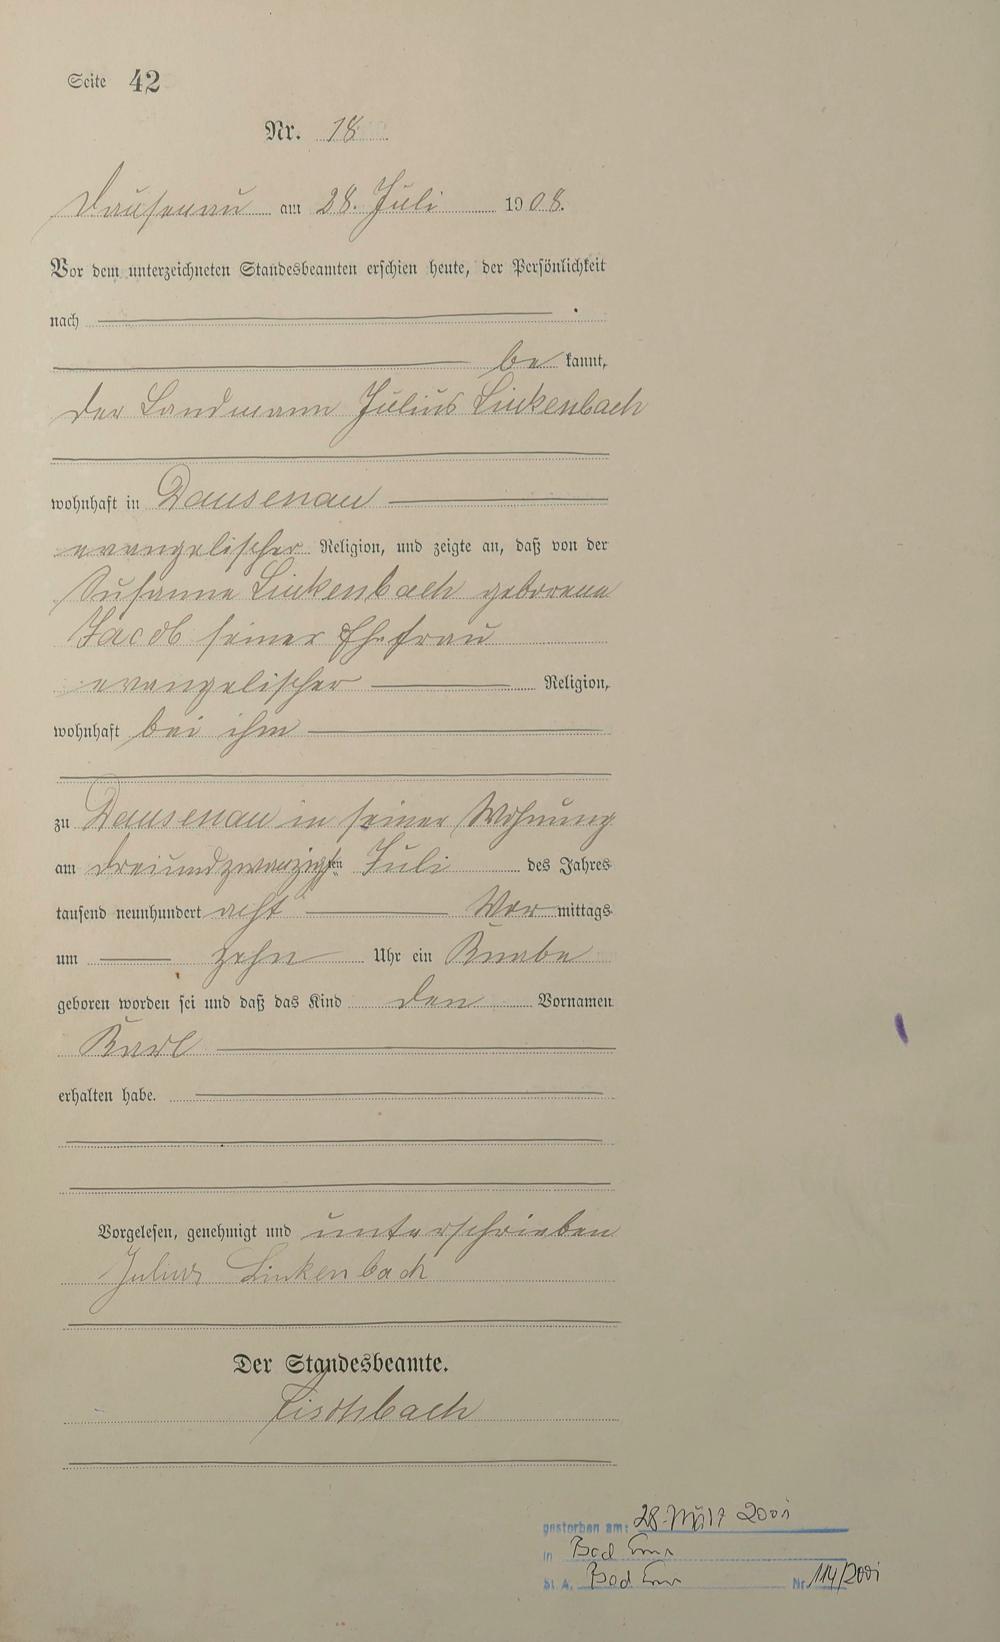 Seite 42
Nr. 18
Dausenau am 28. Juli 1908.
Vor dem unterzeichneten Standesbeamten erschien heute, der Persönlichkeit
nach
be kannt,
der Landmann Julius Linkenbach
wohnhaft in Dausenau
evangelischer Religion, und zeigte an, daß von der
Susanna Linkenbach geborene
Jacob seiner Ehefrau
evangelischer Religion,
wohnhaft bei ihm
zu Dausenau in seiner Wohnung
am dreiundzwanzigsten Juli des Jahres
tausend neunhundert acht Vor mittags
um zehn Uhr ein Knabe
geboren worden sei und daß das Kind den Vornamen
Karl
erhalten habe.
Vorgelesen, genehmigt und unterschrieben
Julius Linkenbach
Der Standesbeamte.
gestorben am: 28. März 2001
in Bad Ems
St. A. Bad Ems Nr. 114/2001